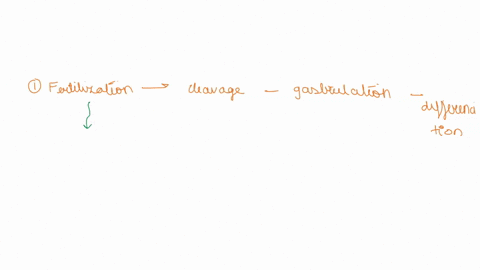 ① Fertilization → cleavage – gastrulation – differentia
tion